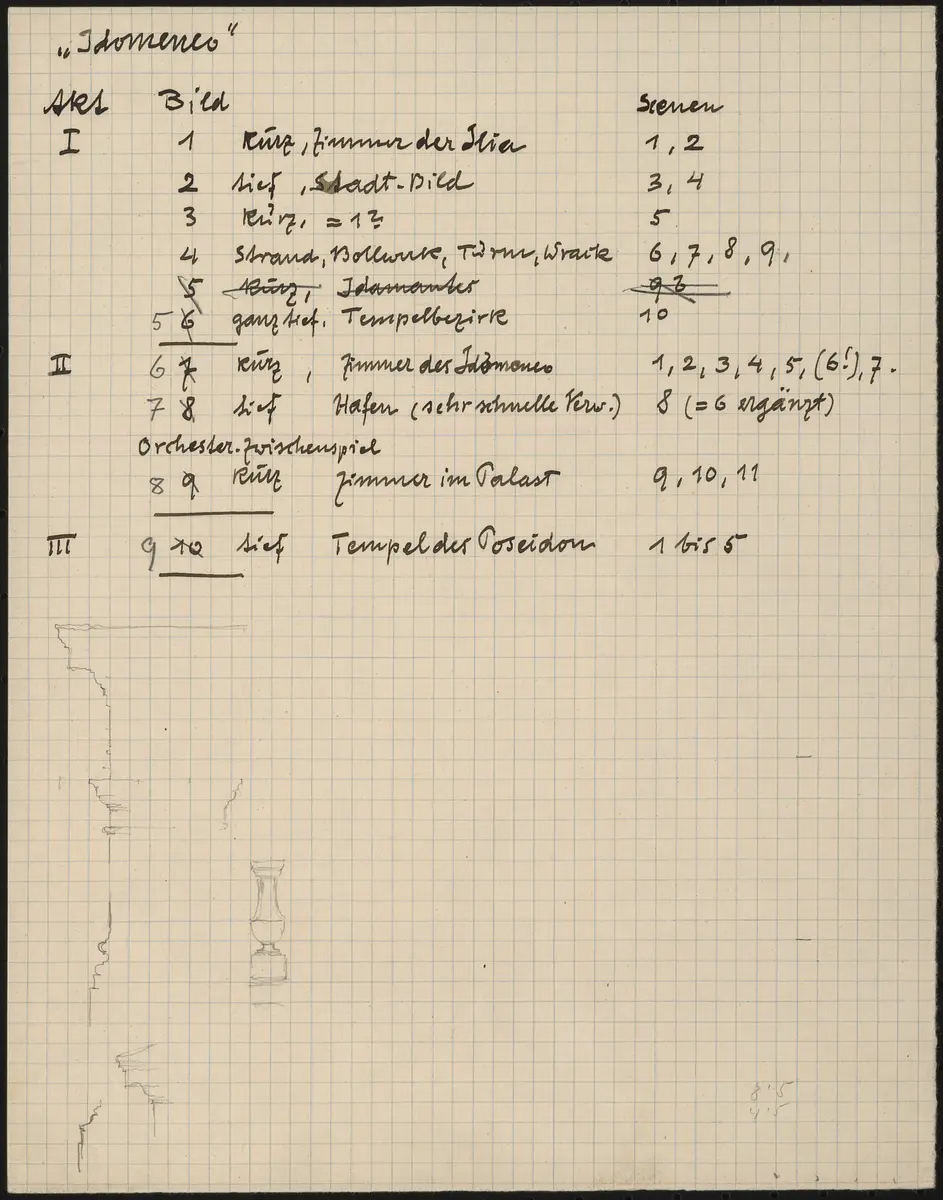 „Idomeneo“
Akt Bild Scenen
I 1 Kurz, Zimmer der Ilia 1, 2
2 tief, Stadt-Bild 3, 4
3 Kurz, = 1? 5
4 Strand, Bollwerk, Türm, Wrack 6, 7, 8, 9,
5 Kurz, Idamantes 9 ?
5 6 ganz tief. Tempelbezirk 10
II 6 7 Kurz, Zimmer des Idomeneo 1, 2, 3, 4, 5, (6!), 7.
7 8 tief Hafen (sehr schnelle Verw.) 8 (= 6 ergänzt)
Orchester-Zwischenspiel
8 9 Kurz Zimmer im Palast 9, 10, 11
III 9 10 tief Tempel des Poseidon 1 bis 5